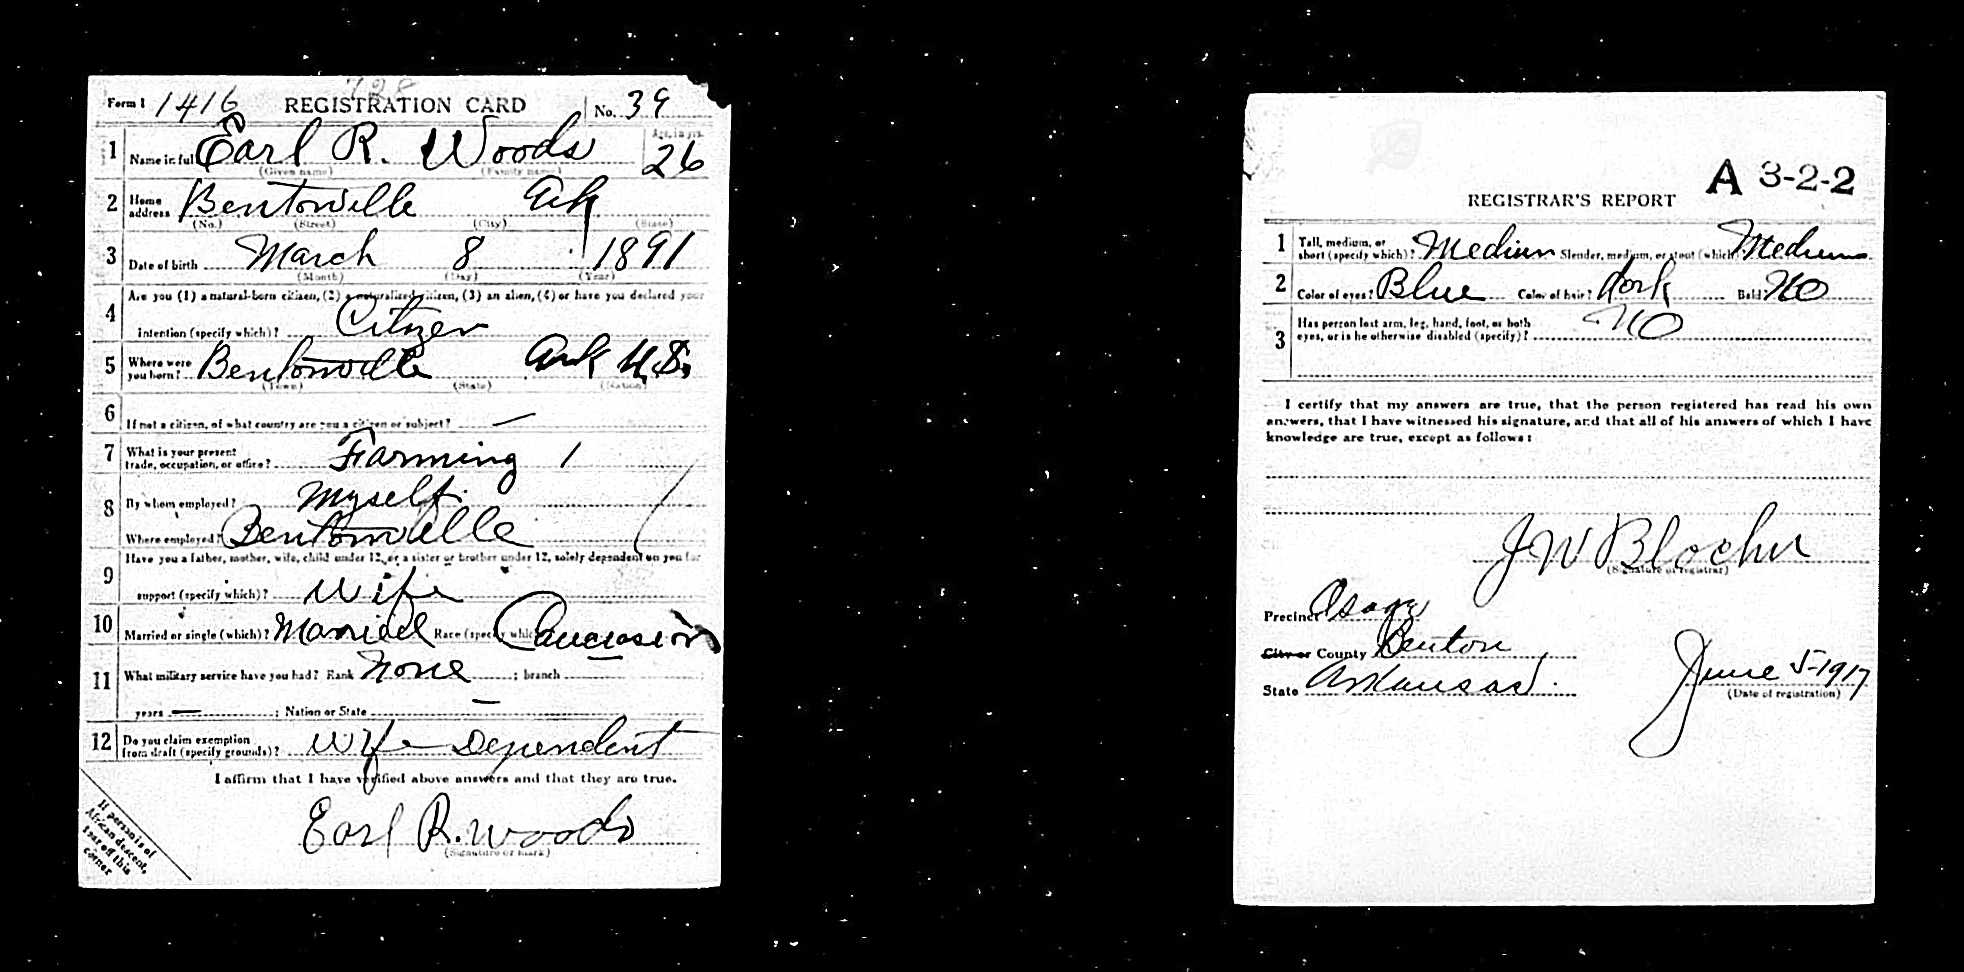 728
Form 1 1416 REGISTRATION CARD No. 39
1 Name in full Earl R. Woods Age, in yrs. 26
(Given name) (Family name)
2 Home address Bentonville Ark
(No.) (Street) (City) (State)
3 Date of birth March 8 1891
(Month) (Day) (Year)
4 Are you (1) a natural-born citizen, (2) a naturalized citizen, (3) an alien, (4) or have you declared your
intention (specify which)? Citizen
5 Where were you born? Bentonville Ark U.S.
(Town) (State) (Nation)
6 If not a citizen, of what country are you a citizen or subject? —
7 What is your present trade, occupation, or office? Farming 1
8 By whom employed? Myself.
Where employed? Bentonville
9 Have you a father, mother, wife, child under 12, or a sister or brother under 12, solely dependent on you for
support (specify which)? Wife
10 Married or single (which)? Married Race (specify which) Caucasion
11 What military service have you had? Rank None ; branch
years — ; Nation or State —
12 Do you claim exemption from draft (specify grounds)? Wife Dependent
I affirm that I have verified above answers and that they are true.
Earl R. Woods
(Signature or mark)
If person is of
African descent,
tear off this
corner
A 3-2-2
REGISTRAR'S REPORT
1 Tall, medium, or short (specify which)? Medium Slender, medium, or stout (which) Medium
2 Color of eyes? Blue Color of hair? dark Bald? No
3 Has person lost arm, leg, hand, foot, or both
eyes, or is he otherwise disabled (specify)? No
I certify that my answers are true, that the person registered has read his own
answers, that I have witnessed his signature, and that all of his answers of which I have
knowledge are true, except as follows:
J W Blocher
(Signature of registrar)
Precinct Osage
City or County Benton
State Arkansas.
June 5-1917
(Date of registration)